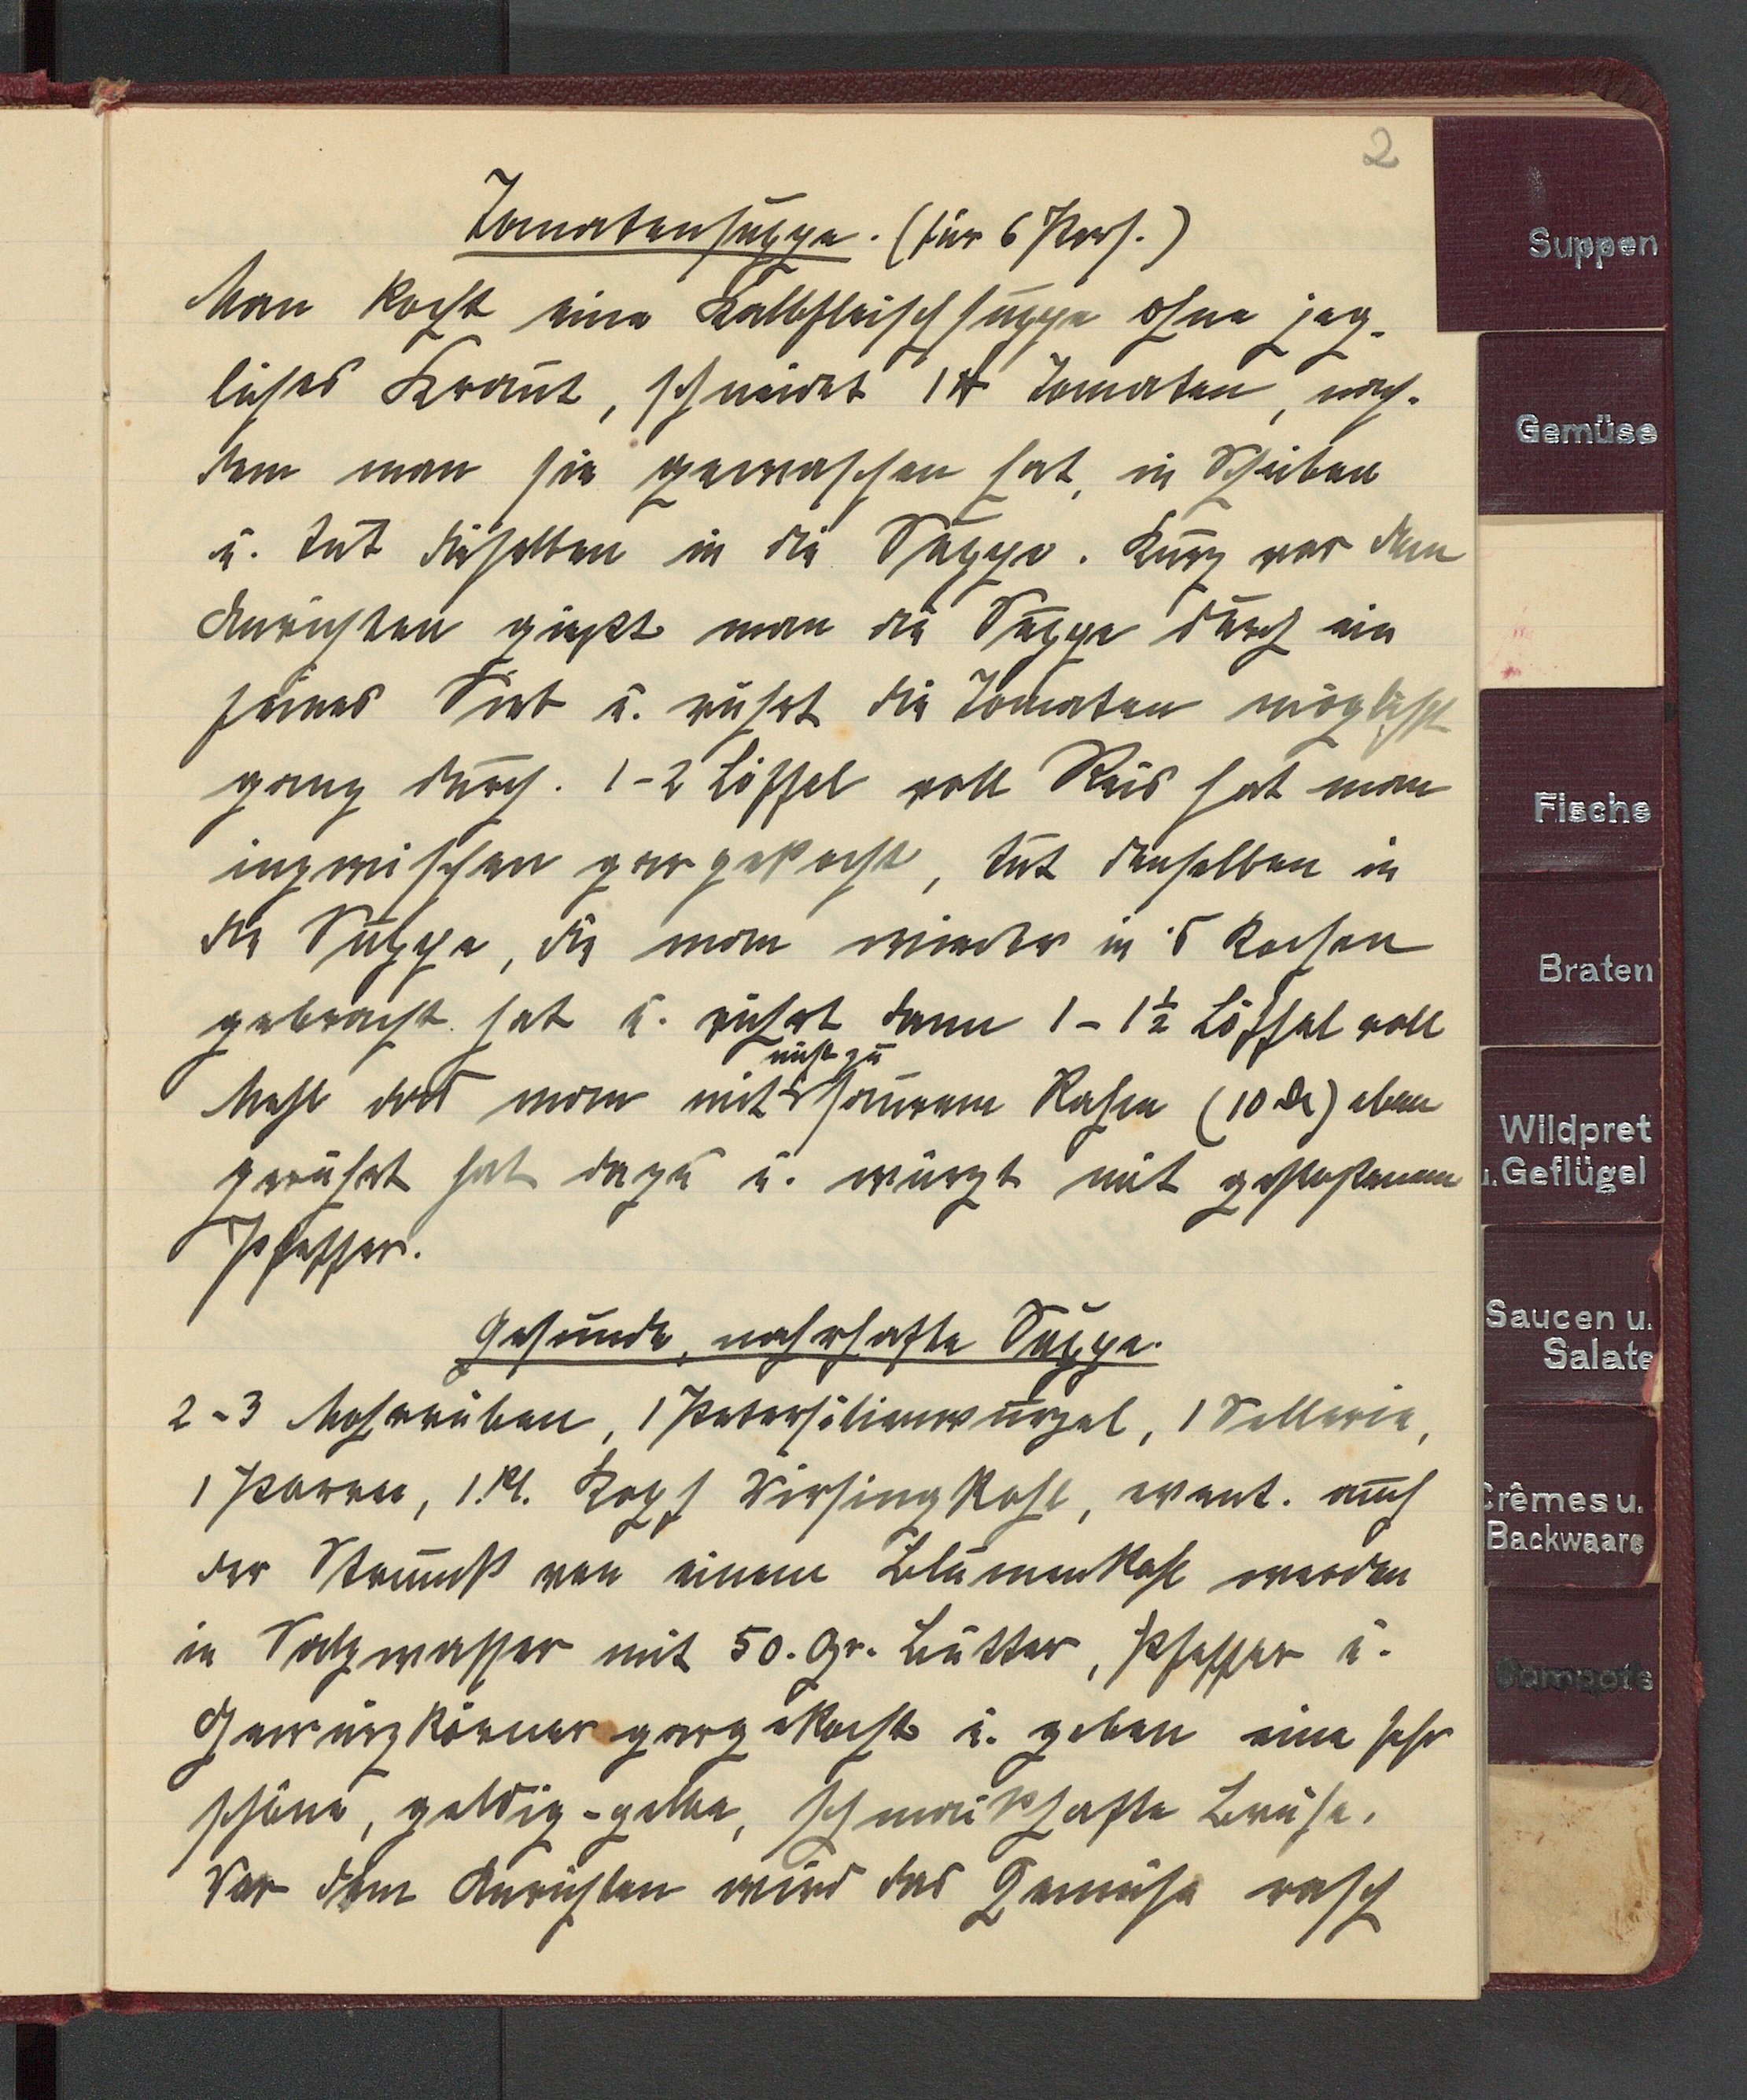 2
Tomatensuppe. (für 6 Pers.)
Man kocht eine Kalbfleischsuppe ohne jeg-
liches Kraut, schneidet 1 ℔ Tomaten, nach-
dem man sie gewaschen hat, in Scheiben
u. tut dieselben in die Suppe. Kurz vor dem
Anrichten gießt man die Suppe durch ein
feines Sieb u. rührt die Tomaten möglichst
ganz durch. 1-2 Löffel voll Reis hat man
inzwischen gargekocht, tut denselben in
die Suppe, die man wieder in's Kochen
gebracht hat u. rührt dann 1-1½ Löffel voll
nicht zu
Mehl das man mit saurem Rahm (10 ₰) eben
gerührt hat dazu u. würzt mit gestoßenem
Pfeffer.
Gesunde, nahrhafte Suppe.
2-3 Mohrrüben, 1 Petersilienwurzel, 1 Sellerie,
1 Porree, 1. kl. Kopf Wirsingkohl, event. auch
der Strunk von einem Blumenkohl werden
in Salzwasser mit 50. Gr. Butter, Pfeffer u.
Gewürzkörner gargekocht u. geben eine sehr
schöne, goldig-gelbe, schmackhafte Brühe.
Vor dem Anrichten wird das Gemüse rasch
Suppen
Gemüse
Fische
Braten
Wildpret
u. Geflügel
Saucen u.
Salate
Crêmes u.
Backwaare
Compots